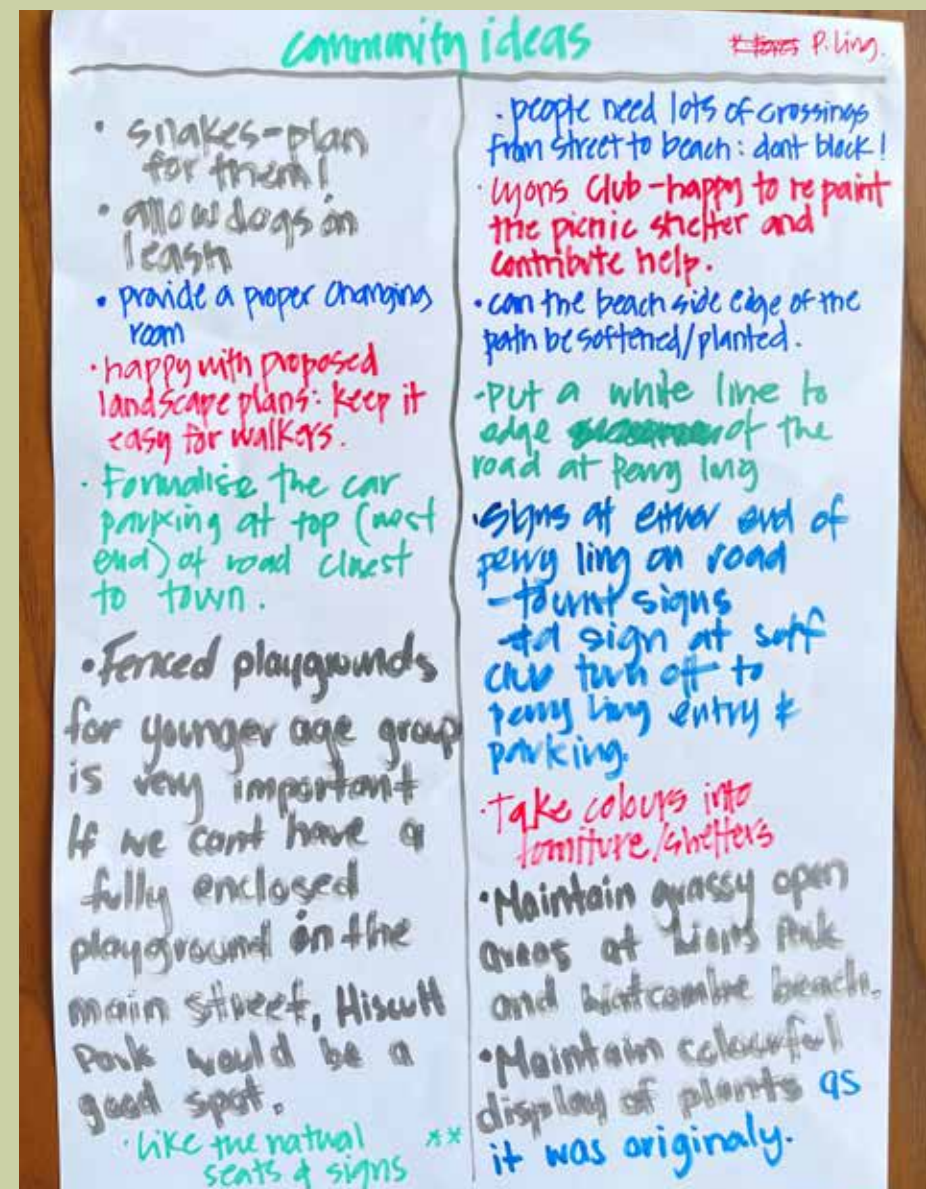 community ideas
P. Ling.
• snakes-plan
for them!
• allow dogs on
leash
• provide a proper changing
room
• happy with proposed
landscape plans: keep it
easy for walkers.
• Formalise the car
parking at top (west
end) of road closest
to town.
• Fenced playgrounds
for younger age group
is very important
If we cant have a
fully enclosed
playground on the
main street, Hiscutt
Park would be a
good spot.
• like the natural **
seats & signs
• people need lots of crossings
from street to beach: dont block!
• Lyons Club-happy to repaint
the picnic shelter and
contribute help.
• can the beach side edge of the
path be softened/planted.
• Put a white line to
edge of the
road at Perry ling
• Signs at either end of
perry ling on road
- tourist signs
sign at surf
club turn off to
perry ling entry &
parking.
• Take colours into
furniture/shelters
• Maintain grassy open
areas at Lions Park
and Watcombe beach.
• Maintain colourful
display of plants as
it was originaly.